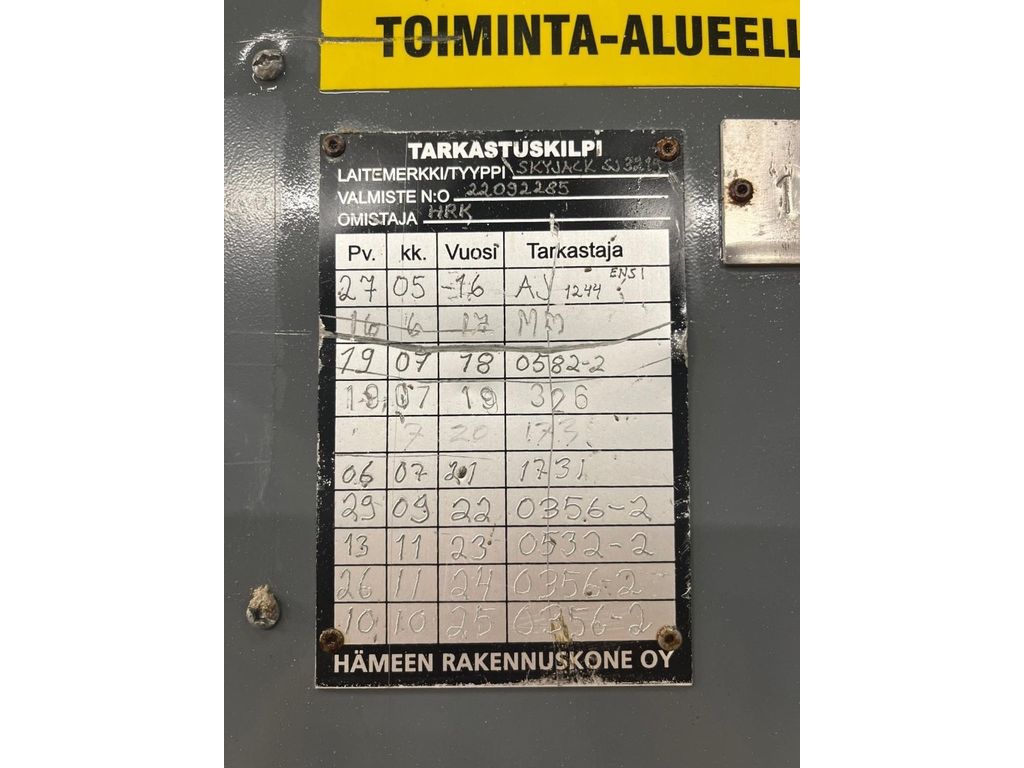 TOIMINTA-ALUEELL
TARKASTUSKILPI
LAITEMERKKI/TYYPPI SKYJACK
VALMISTE N:O 22092285
OMISTAJA HRK
Pv. kk. Vuosi Tarkastaja
27 05 -16 AJ 1244 ENSI
16 6 17 MM
19 07 18 0582-2
19 07 19 326
7 20
06 07 21 1731
29 09 22 0356-2
13 11 23 0532-2
26 11 24 0356-2
10 10 25 0356-2
HÄMEEN RAKENNUSKONE OY